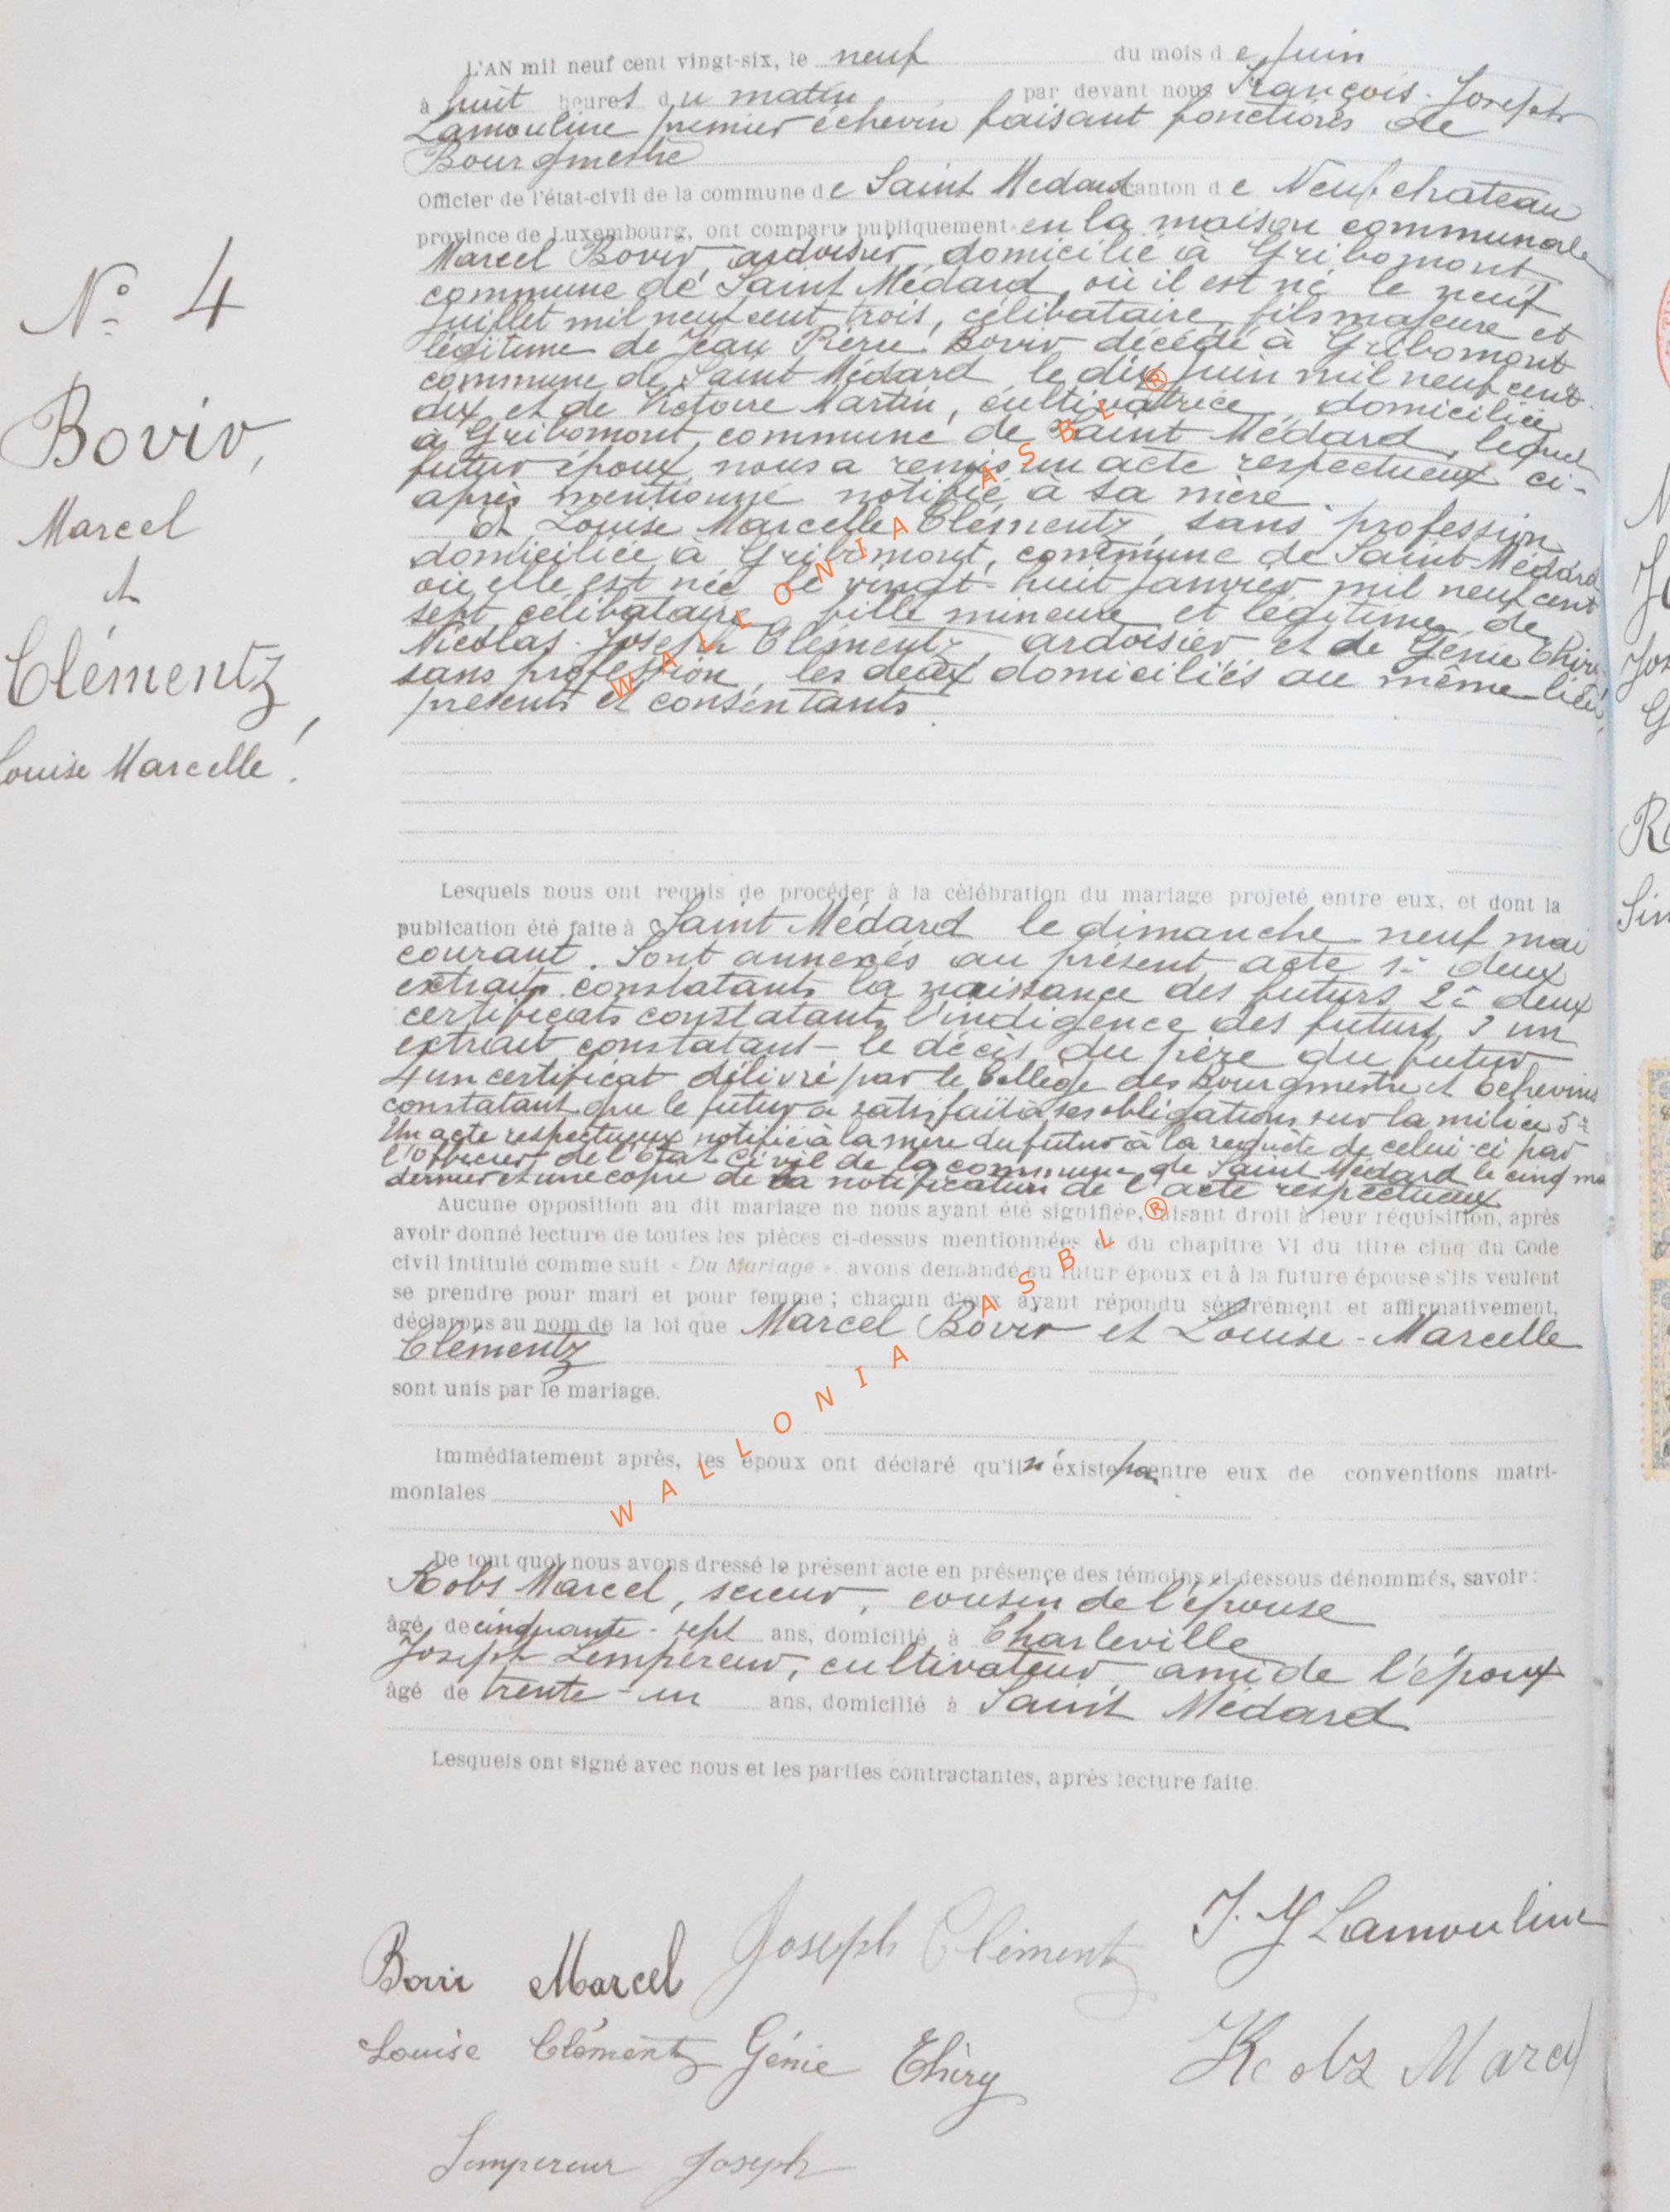 N° 4
Bovir,
Marcel
et
Clémentz,
Louise Marcelle.
L'AN mil neuf cent vingt-six, le neuf du mois de Juin
à huit heures du matin, par devant nous François-Joseph
Lamouline premier échevin faisant fonctions de
Bourgmestre
Officier de l'état-civil de la commune de Saint Médard canton de Neufchateau
province de Luxembourg, ont comparu publiquement en la maison communale
Marcel Bovir, ardoisier, domicilié à Gribomont
commune de Saint Médard, où il est né le neuf
Juillet mil neuf cent trois, célibataire, fils majeure et
légitime de Jean Pierre Bovir décédé à Gribomont
commune de Saint Médard le dix Juin mil neuf cent
dix et de Victoire Martin, cultivatrice, domiciliée
à Gribomont, commune de Saint Médard, lequel
futur époux nous a remis un acte respectueux ci-
après mentionné notifié à sa mère
et Louise Marcelle Clémentz, sans profession
domiciliée à Gribomont, commune de Saint-Médard
où elle est née le vingt-huit Janvier mil neuf cent
sept, célibataire, fille mineure et légitime de
Nicolas-Joseph Clémentz, ardoisier et de Génie Thiry
sans profession, les deux domiciliés au même lieu,
présents et consentants
Lesquels nous ont requis de procéder à la célébration du mariage projeté entre eux, et dont la
publication été faite à Saint Médard le dimanche neuf mai
courant. Sont annexés au présent acte 1° deux
extraits constatants la naissance des futurs 2° deux
certificats constatants l'indigence des futurs, 3 un
extrait constatant le décès du père du futur
4 un certificat délivré par le Collège des Bourgmestre et Echevins
constatant que le futur a satisfait à ses obligations sur la milice 5°
Un acte respectueux notifié à la mère du futur à la requête de celui-ci par
l'Officier de l'Etat Civil de la commune de Saint Médard le cinq mai
dernier et une copie de la notification de l'acte respectueux
Aucune opposition au dit mariage ne nous ayant été signifiée, faisant droit à leur réquisition, après
avoir donné lecture de toutes les pièces ci-dessus mentionnées et du chapitre VI du titre cinq du Code
civil intitulé comme suit « Du Mariage », avons demandé au futur époux et à la future épouse s'ils veulent
se prendre pour mari et pour femme ; chacun d'eux ayant répondu séparément et affirmativement,
déclarons au nom de la loi que Marcel Bovir et Louise-Marcelle
Clémentz
sont unis par le mariage.
Immédiatement après, les époux ont déclaré qu'il n'existe pas entre eux de conventions matri-
moniales
De tout quoi nous avons dressé le présent acte en présence des témoins ci-dessous dénommés, savoir :
Kobs Marcel, scieur, cousin de l'épouse
âgé de cinquante-sept ans, domicilié à Charleville
Joseph Lempereur, cultivateur ami de l'époux
âgé de trente-un ans, domicilié à Saint Médard
Lesquels ont signé avec nous et les parties contractantes, après lecture faite.
Bovir Marcel Joseph Clémentz J. J Lamouline
Louise Clémentz Génie Thiry Kobs Marcel
Lempereur Joseph
WALLONIA ASBL ®
WALLONIA ASBL ®